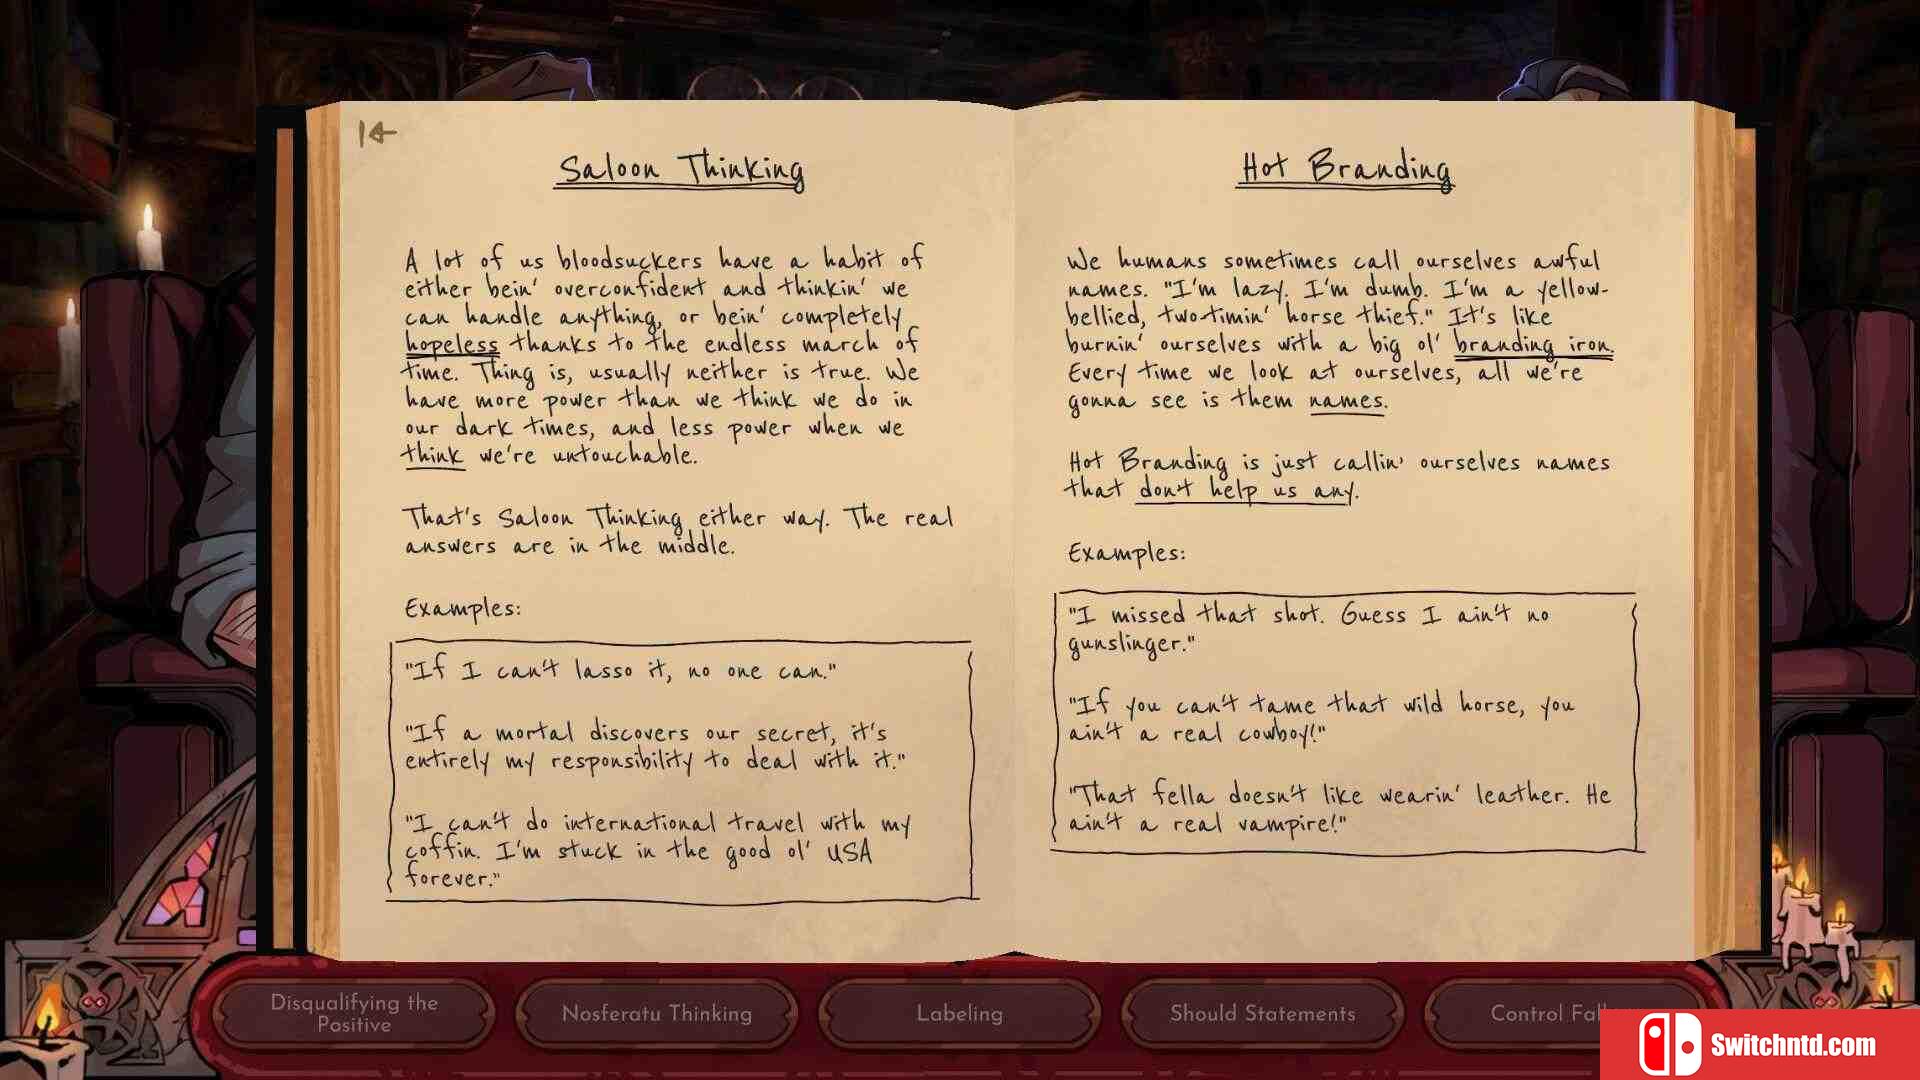 Saloon Thinking
A lot of us bloodsuckers have a habit of
either bein' overconfident and thinkin' we
can handle anything, or bein' completely
hopeless thanks to the endless march of
time. Thing is, usually neither is true. We
have more power than we think we do in
our dark times, and less power when we
think we're untouchable.
That's Saloon Thinking either way. The real
answers are in the middle.
Examples:
"If I can't lasso it, no one can."
"If a mortal discovers our secret, it's
entirely my responsibility to deal with it."
"I can't do international travel with my
coffin. I'm stuck in the good ol' USA
forever."
Hot Branding
We humans sometimes call ourselves awful
names. "I'm lazy. I'm dumb. I'm a yellow-
bellied, two-timin' horse thief." It's like
burnin' ourselves with a big ol' branding iron.
Every time we look at ourselves, all we're
gonna see is them names.
Hot Branding is just callin' ourselves names
that don't help us any.
Examples:
"I missed that shot. Guess I ain't no
gunslinger."
"If you can't tame that wild horse, you
ain't a real cowboy!"
"That fella doesn't like wearin' leather. He
ain't a real vampire!"
Disqualifying the
Positive
Nosferatu Thinking
Labeling
Should Statements
Control Fal
Switchntd.com